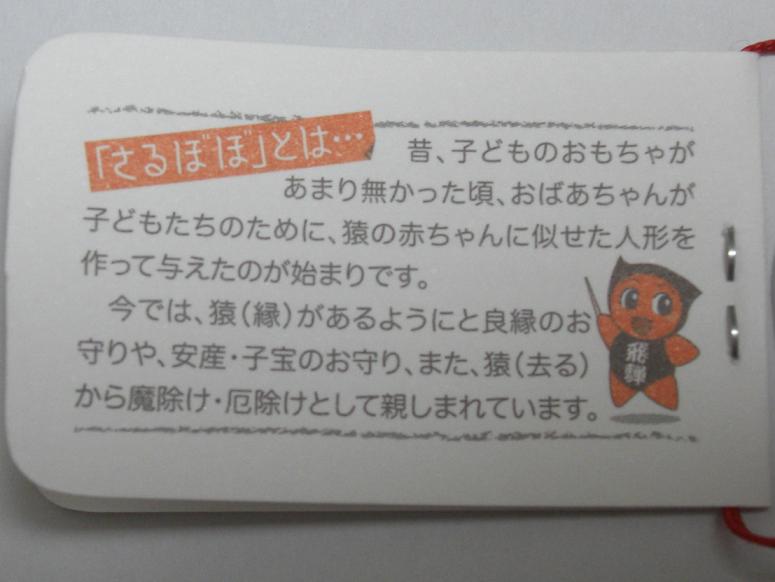 「さるぼぼ」とは…
昔、子どものおもちゃが
あまり無かった頃、おばあちゃんが
子どもたちのために、猿の赤ちゃんに似せた人形を
作って与えたのが始まりです。
今では、猿(縁)があるようにと良縁のお
守りや、安産・子宝のお守り、また、猿(去る)
から魔除け・厄除けとして親しまれています。
飛騨